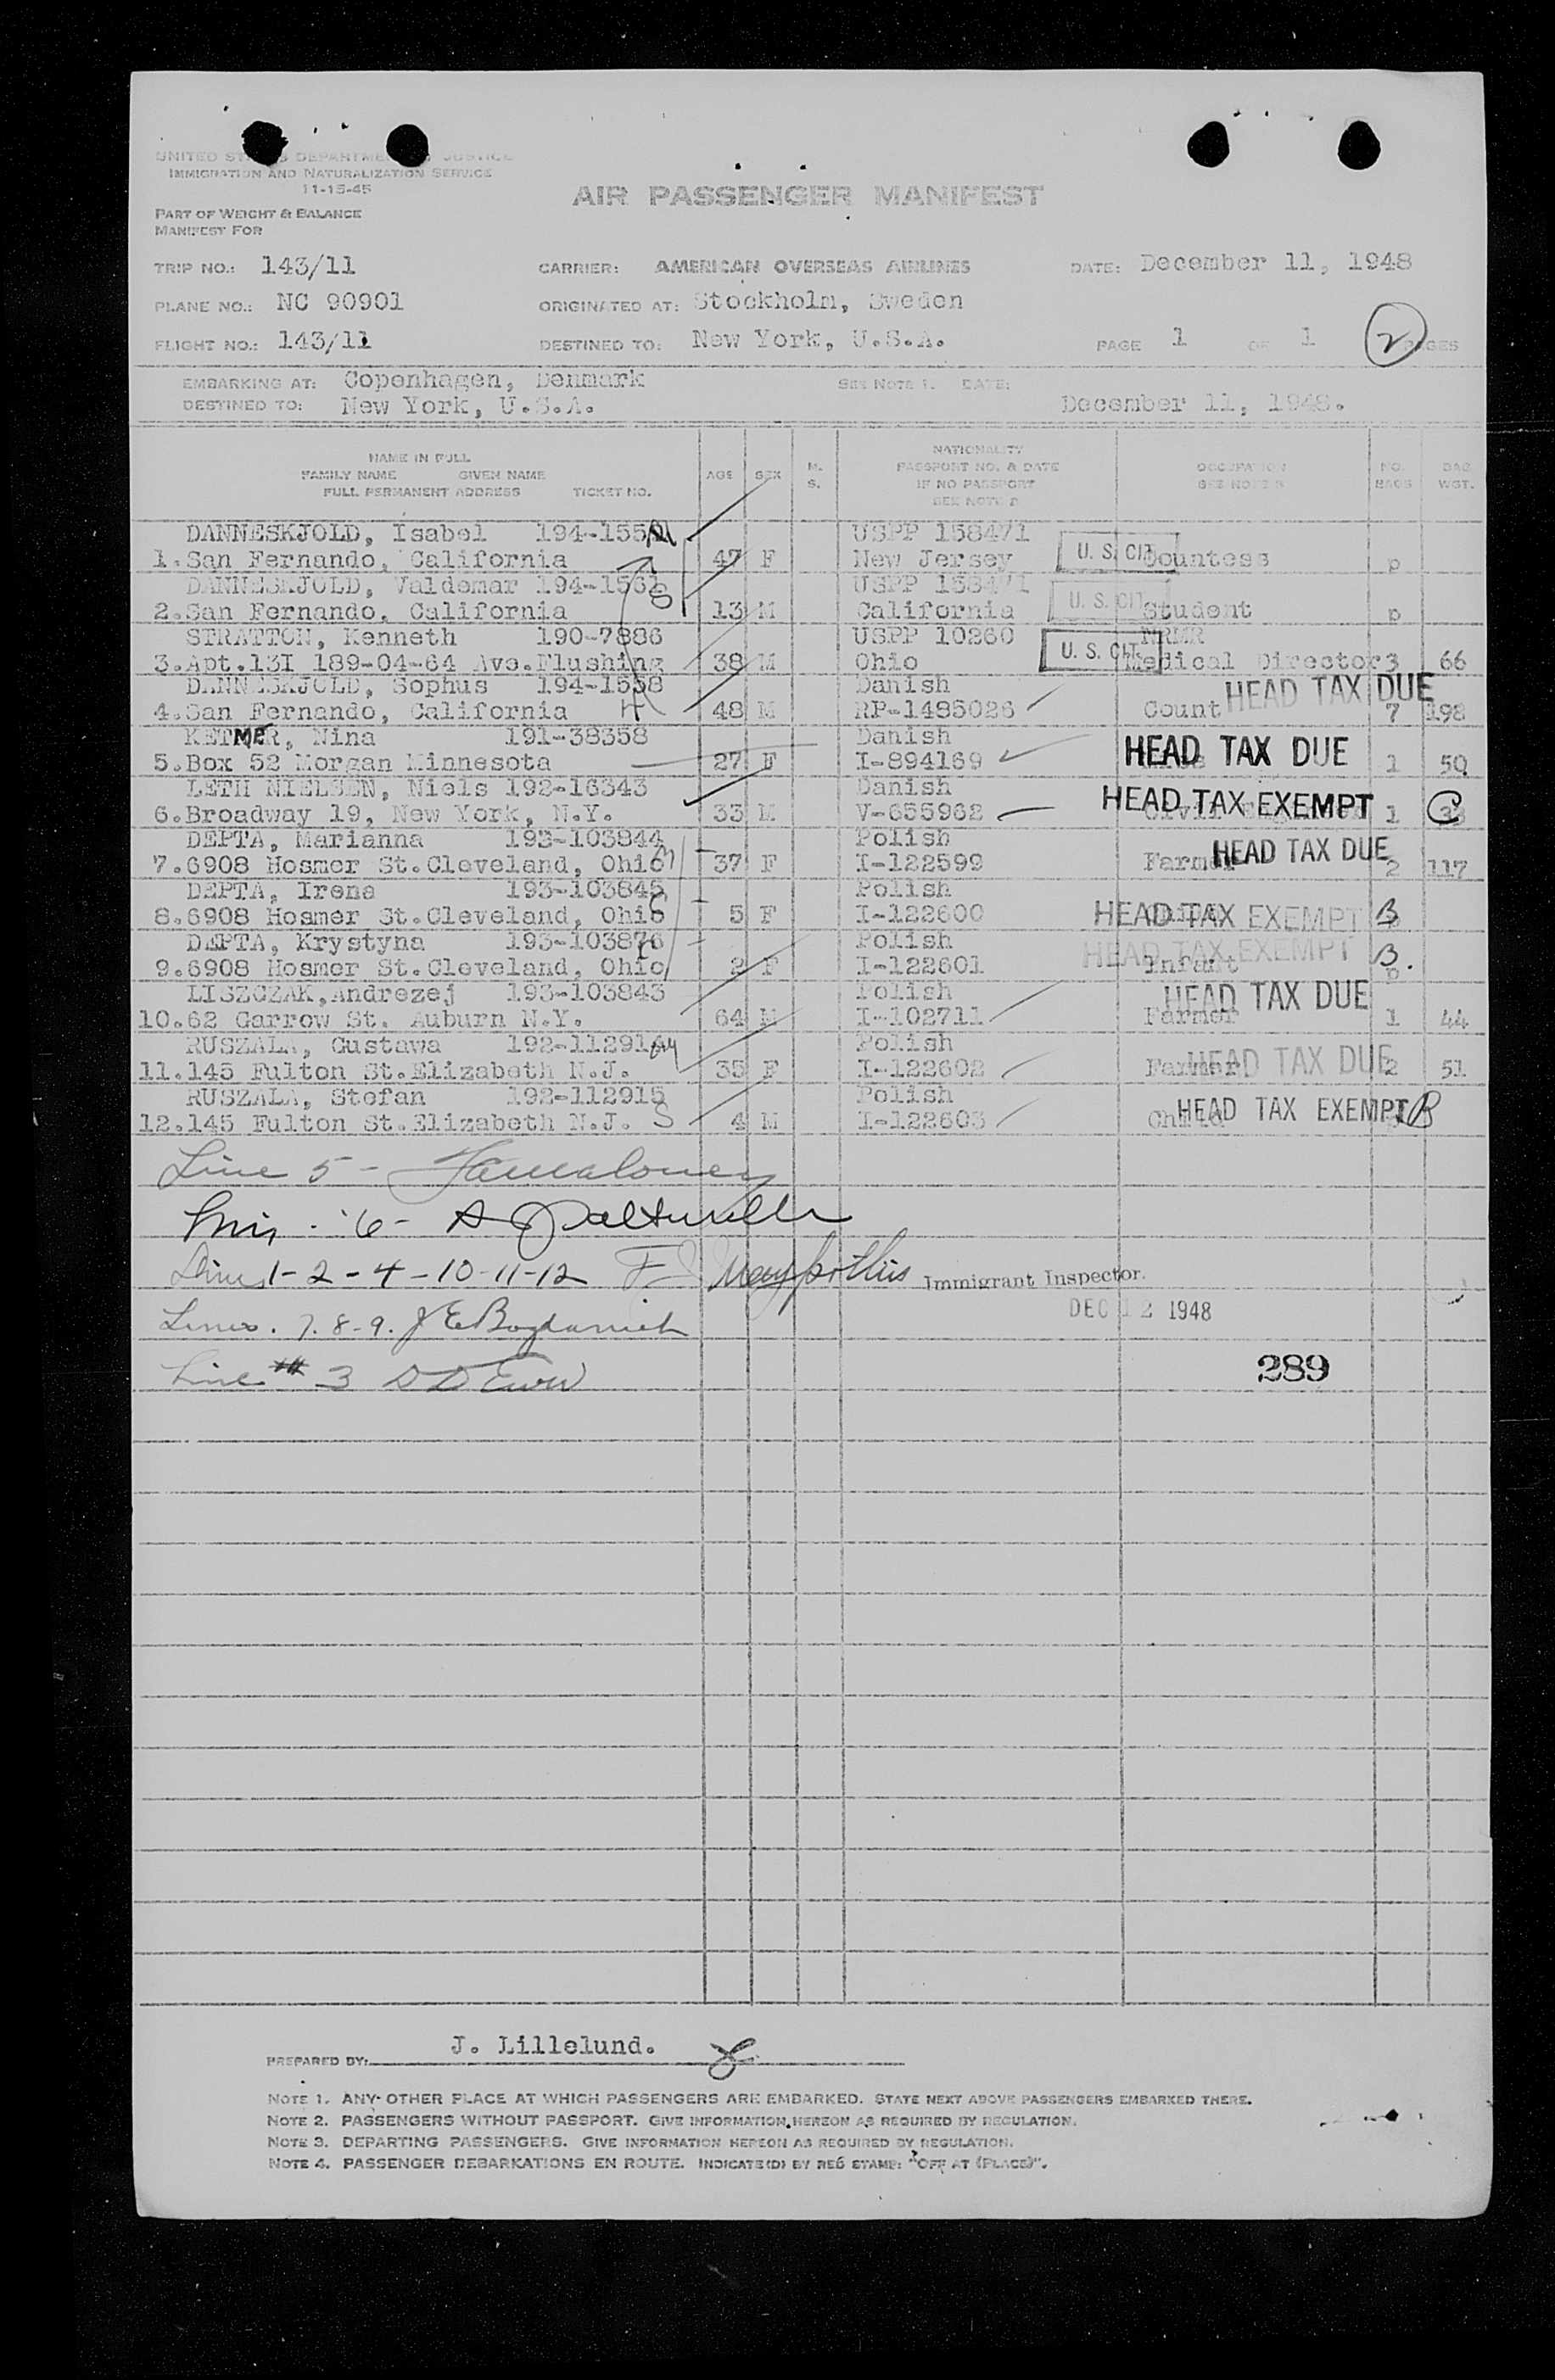 UNITED STATES DEPARTMENT OF JUSTICE
IMMIGRATION AND NATURALIZATION SERVICE
11-15-45
AIR PASSENGER MANIFEST
PART OF WEIGHT & BALANCE
MANIFEST FOR
TRIP NO.: 143/11 CARRIER: AMERICAN OVERSEAS AIRLINES DATE: December 11, 1948
PLANE NO.: NC 90901 ORIGINATED AT: Stockholm, Sweden
FLIGHT NO.: 143/11 DESTINED TO: New York, U.S.A. PAGE 1 OF 1 2 PAGES
EMBARKING AT: Copenhagen, Denmark SEE NOTE 1. DATE:
DESTINED TO: New York, U.S.A. December 11, 1948.
NAME IN FULL NATIONALITY
FAMILY NAME GIVEN NAME AGE SEX M. S. PASSPORT NO. & DATE OCCUPATION NO. BAGS BAG. WGT.
FULL PERMANENT ADDRESS TICKET NO. IF NO PASSPORT SEE NOTE 2
DANNESKJOLD, Isabel 194-155 USPP 158471
1. San Fernando, California 47 F New Jersey U. S. CIT. Countess p
DANNESKJOLD, Valdemar 194-1561 USPP 158471
2. San Fernando, California 13 M California U. S. CIT. Student p
STRATTON, Kenneth 190-7886 USPP 10260
3. Apt.13I 189-04-64 Ave.Flushing 38 M Ohio U. S. CIT. Medical Director 3 66
DANNESKJOLD, Sophus 194-1558 Danish HEAD TAX DUE
4. San Fernando, California 48 M RP-1485026 Count 7 198
KETMER, Nina 191-38358 Danish
5. Box 52 Morgan Minnesota 27 F I-894169 HEAD TAX DUE 1 50
LETH NIELSEN, Niels 192-16343 Danish
6. Broadway 19, New York, N.Y. 33 M V-655962 HEAD TAX EXEMPT 1 C
DEPTA, Marianna 193-103844 Polish
7. 6908 Hosmer St.Cleveland, Ohio 37 F I-122599 Farmer HEAD TAX DUE 2 117
DEPTA, Irena 193-103845 Polish
8. 6908 Hosmer St.Cleveland, Ohio 5 F I-122600 HEAD TAX EXEMPT B
DEPTA, Krystyna 193-103876 Polish
9. 6908 Hosmer St.Cleveland, Ohio 2 F I-122601 Infant HEAD TAX EXEMPT B. p
LISZCZAK, Andrezej 193-103843 Polish
10. 62 Garrow St. Auburn N.Y. 64 M I-102711 Farmer HEAD TAX DUE 1 44
RUSZALA, Gustawa 192-112914 Polish
11. 145 Fulton St.Elizabeth N.J. 35 F I-122602 Farmer HEAD TAX DUE 2 51
RUSZALA, Stefan 192-112915 Polish
12. 145 Fulton St.Elizabeth N.J. 4 M I-122603 Child HEAD TAX EXEMPT B
Line 5 -
6 -
Lines 1-2-4-10-11-12 Immigrant Inspector.
Lines. 7. 8-9. J E Bogdanich DEC 12 1948
Line # 3 289
PREPARED BY: J. Lillelund.
NOTE 1. ANY OTHER PLACE AT WHICH PASSENGERS ARE EMBARKED. STATE NEXT ABOVE PASSENGERS EMBARKED THERE.
NOTE 2. PASSENGERS WITHOUT PASSPORT. GIVE INFORMATION HEREON AS REQUIRED BY REGULATION.
NOTE 3. DEPARTING PASSENGERS. GIVE INFORMATION HEREON AS REQUIRED BY REGULATION.
NOTE 4. PASSENGER DEBARKATIONS EN ROUTE. INDICATE(D) BY RED STAMP: "OFF AT (PLACE)".